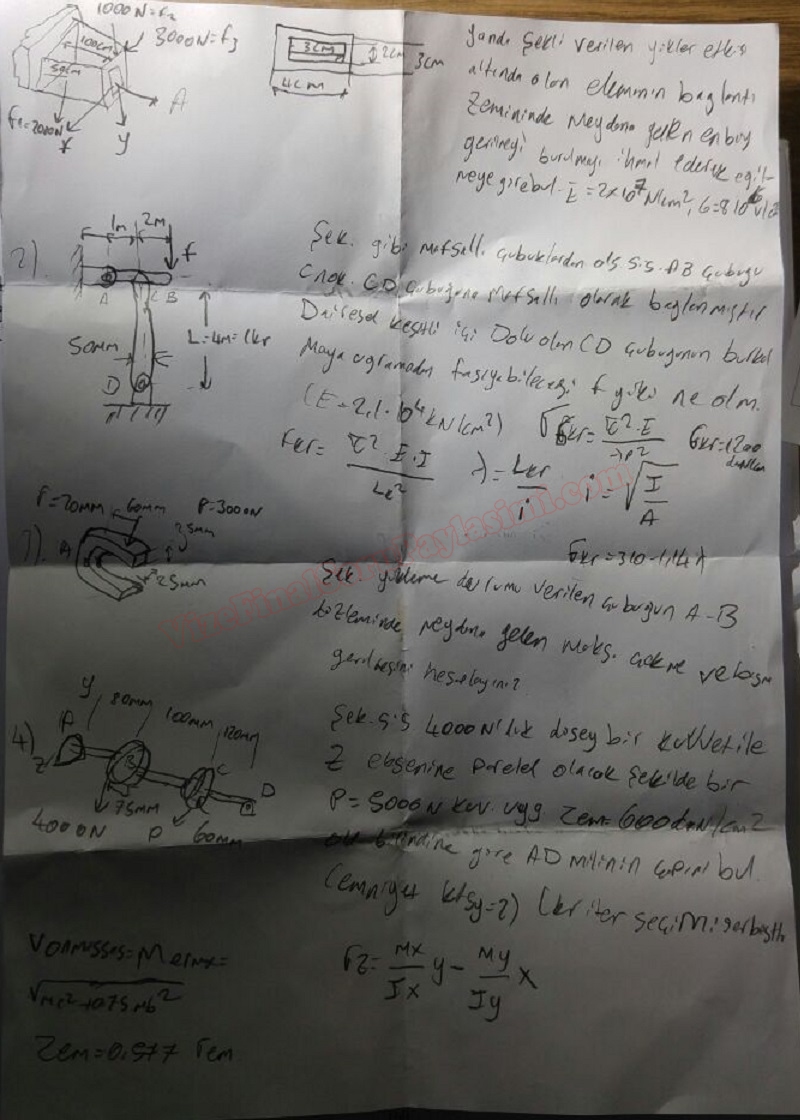 1000N=F2
3000N=F3
100cm
50cm
F1=2000N
x
y
A
3cm
2cm
3cm
4cm
Yanda Şekli verilen yükler etkisi
altında olan elemanın bağlantı
Zemininde Meydana gelen en büy
gerilmeyi burulmayı ihmal ederek eğil-
meye göre bul. E=2x10^7 N/cm²,
2)
1m
2m
F
A
B
50mm
L=4m=Lkr
D
Şek. gibi mafsallı çubuklardan olş. sis. AB çubuğu
C nok. CD çubuğuna Mafsallı olarak bağlanmıştır
Dairesel kesitli içi Dolu olan CD çubuğunun burkul
Maya uğramadan taşıyabileceği F yükü ne olm.
(E=2,1.10^4 kN/cm²)
Fkr=π².E.I/Lk²
λ=Lkr/i
i=√I/A
σkr=π².E/λp²
σkr=1200
σkr=310-1,14λ
3)
r=20mm
60mm
P=3000N
25mm
25mm
A
Şek yükleme durumu verilen çubuğun A-B
düzleminde meydana gelen maks. çekme ve basm
gerilmesini hesaplayınız?
4)
y
A
z
80mm
100mm
120mm
B
C
D
75mm
4000N
P
60mm
Şek. sis 4000N'luk düşey bir kuvvet ile
Z eksenine Paralel olacak şekilde bir
P=5000N kuv. uyg Zem=600daN/cm²
göre AD milinin çapını bul.
(emniyet ktsy=2) (kriter seçimi serbesttir
Vonmisses=
√Me²+0.75Mb²
Zem=0,577 σem
σz=Mx/Ix y-My/Iy x
VizeFinalSoruPaylasimi.com